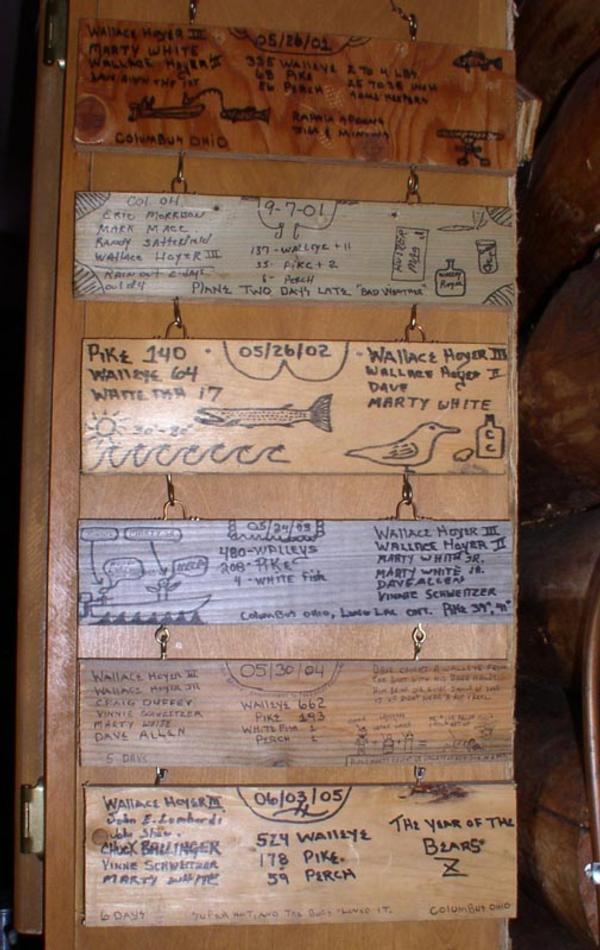 WALLACE HOYER III
MARTY WHITE
WALLACE HOYER II
05/26/01
335 WALLEYE 2 TO 4 LBS.
68 PIKE
86 PERCH
COLUMBUS OHIO
COL. OH.
ERIC MORRISON
MARK MACE
RANDY SATTERFIELD
WALLACE HOYER III
RAIN OUT 2-DAYS
out of 4
9-7-01
137-WALLEYE + 11
35- PIKE + 2
6- PERCH
PLANE TWO DAYS LATE "BAD WEATHER"
PIKE 140
WALLEYE 64
WHITE FISH 17
05/26/02
WALLACE HOYER III
WALLACE HOYER II
DAVE
MARTY WHITE
30°-80°
C
C
05/24/03
480-WALLEYS
208-PIKE
4-WHITE FISH
WALLACE HOYER III
WALLACE HOYER II
MARTY WHITE SR.
MARTY WHITE JR.
DAVE ALLEN
VINNIE SCHWEITZER
COLUMBUS OHIO, LONG LAC ONT. PIKE 39", 41"
WALLACE HOYER III
WALLACE HOYER JR
CRAIG DUFFEY
VINNIE SCHWEITZER
MARTY WHITE
DAVE ALLEN
5 DAYS
05/30/04
WALLEYE 662
PIKE 193
WHITE FISH 1
PERCH 2
DAVE CAUGHT A WALLEYE FROM
THE BOAT WITH HIS BARE HANDS
WALLACE HOYER III
John E. Lombardi
CHUCK BALLINGER
VINNE SCHWEITZER
MARTY WHITE
6 DAYS
06/03/05
524 WALLEYE
178 PIKE
59 PERCH
THE YEAR OF THE
BEARS
X
SUPER HOT, AND THE BUGS LOVED IT.
COLUMBUS OHIO